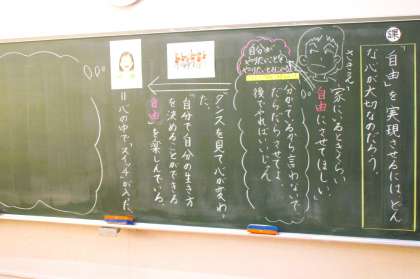 課
「自由」を実現させるにはどん
な心が大切なのだろう。
さきえ
「家にいるときくらい
自由にさせてほしい」
自分が
やりたいことを
やりたいときに
分かてるから言わないで
だらだらさせてよ
後でやればいいじん
ダンスを見て心が変わっ
た。
「自分で自分の生き方
を決めることができる
自由」を楽しんでいる。
=心の中でスイッチが入った。